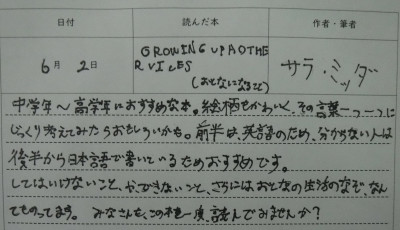 日付 読んだ本 作者・筆者
6月 2日 GROWING UP AD OTHE サラ・ミッダ
R VILES
(おとなになること)
中学年〜高学年におすすめな本。絵柄もかわいく、その言葉一つ一つに
じっくり考えてみたらおもしろいかも。前半は、英語のため、分からない人は
後半から日本語で書いているためおすすめです。
してはいけないこと、できないこと、さらには、おとなの生活のなぞ、なん
てものってます。みなさんも、この本を一度、読んでみませんか?